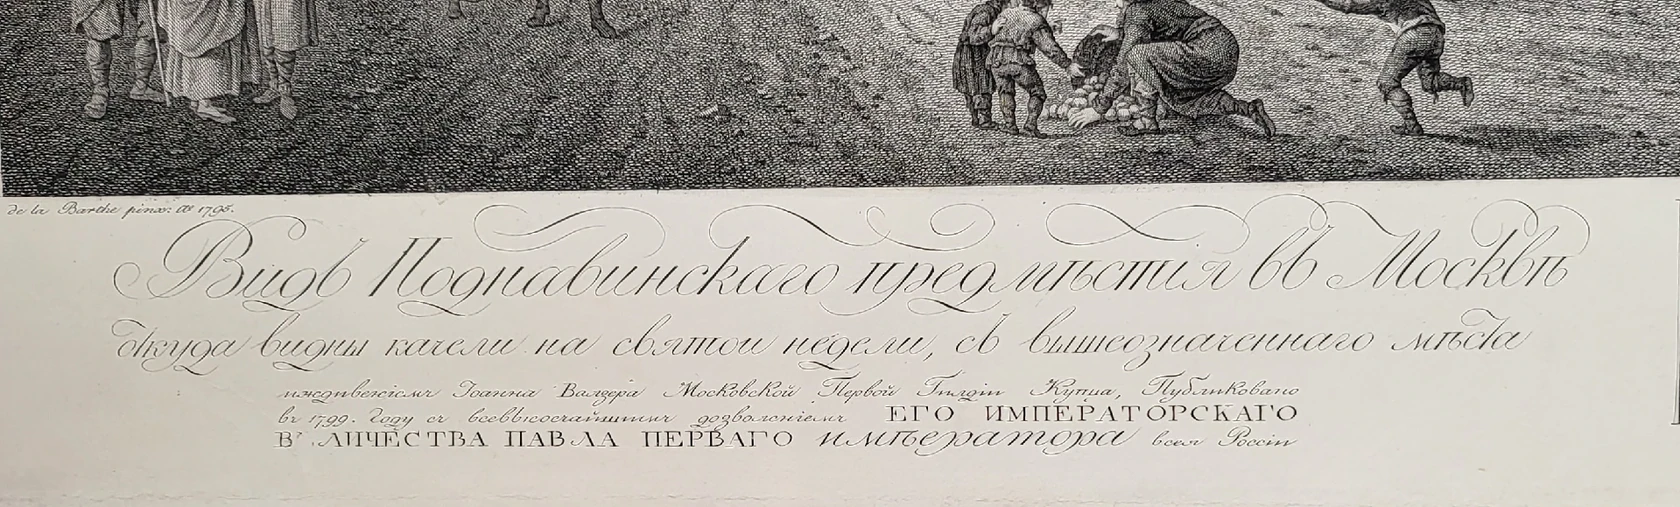 de la Barthe pinx: 1796.
Видъ Поднавинскаго предмѣстія въ Москвѣ
откуда видны качели на святои недели, съ вышеозначеннаго мѣста
иждивеніемъ Іоанна Валзера Московской Первой Гилдіи Купца, Публиковано
въ 1799. году съ всевысочайшимъ дозволеніемъ ЕГО ИМПЕРАТОРСКАГО
ВЕЛИЧЕСТВА ПАВЛА ПЕРВАГО императора всея Россіи